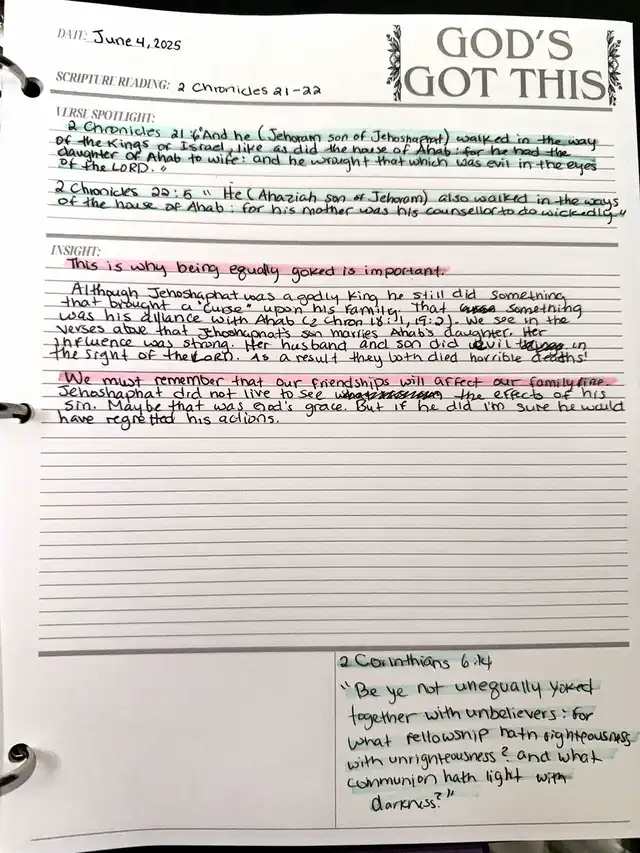 DATE: June 4, 2025
GOD'S
GOT THIS
SCRIPTURE READING: 2 Chronicles 21-22
VERSE SPOTLIGHT:
2 Chronicles 21:6 "And he (Jehoram son of Jehoshaphat) walked in the way
of the Kings of Israel, like as did the house of Ahab: for he had the
daughter of Ahab to wife: and he wrought that which was evil in the eyes
of the LORD."
2 Chronicles 22:5 " He (Ahaziah son of Jehoram) also walked in the ways
of the house of Ahab: for his mother was his counsellor to do wickedly"
INSIGHT:
This is why being equally yoked is important.
Although Jehoshaphat was a godly king he still did something
that brought a "curse" upon his family. That something
was his alliance with Ahab (2 Chron 18:1, 19:2). We see in the
verses above that Jehoshaphat's son marries Ahab's daughter. Her
influence was strong. Her husband and son did evil in
the sight of the LORD. As a result they both died horrible deaths!
We must remember that our friendships will affect our family line.
Jehoshaphat did not live to see the effects of his
sin. Maybe that was God's grace. But if he did I'm sure he would
have regretted his actions.
2 Corinthians 6:14
"Be ye not unequally yoked
together with unbelievers: for
what fellowship hath righteousness
with unrighteousness? and what
communion hath light with
darkness?"